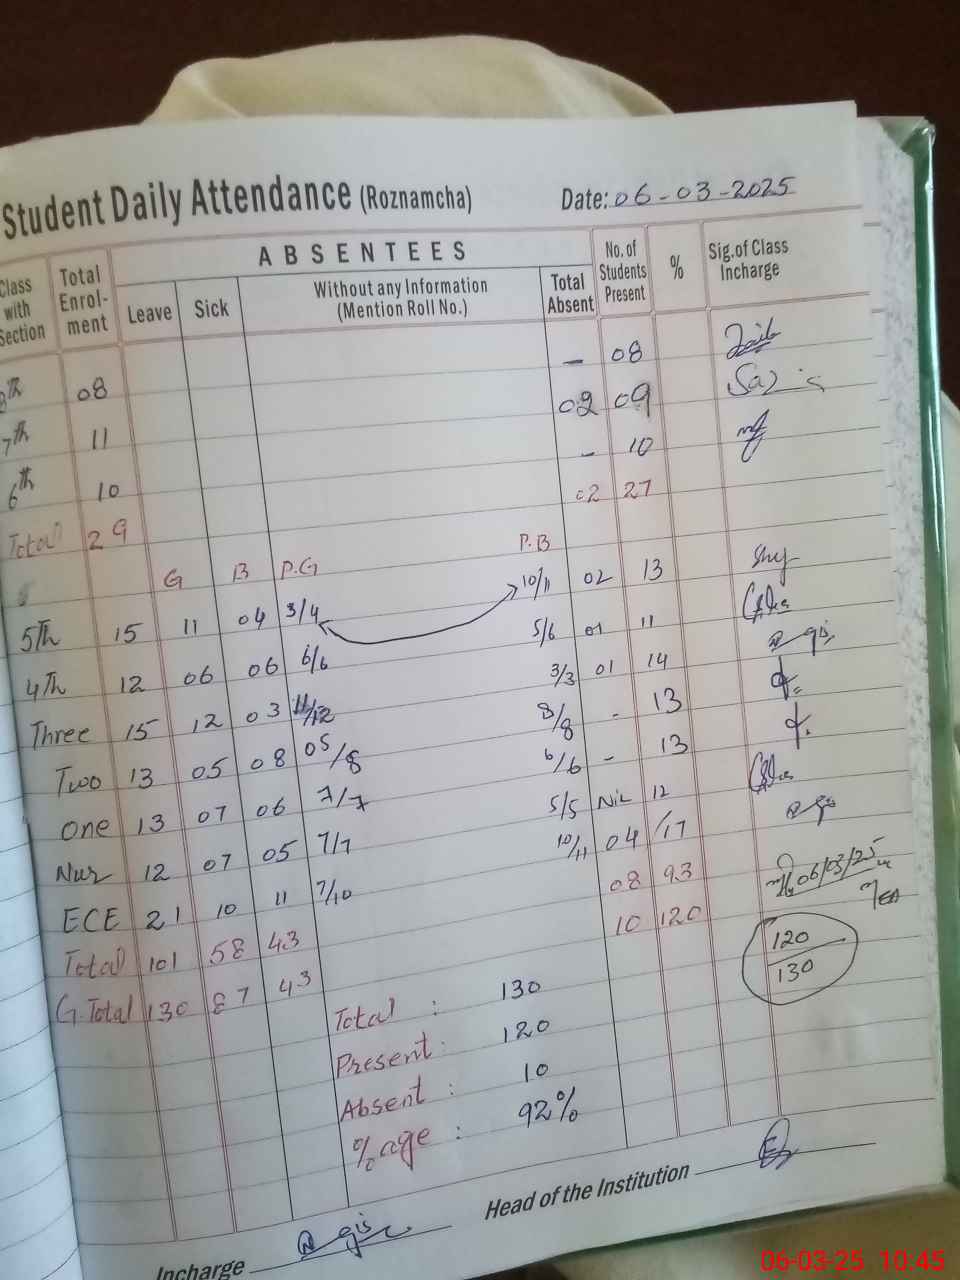 Student Daily Attendance (Roznamcha) Date: 06-03-2025
Class with Section Total Enrol-ment ABSENTEES No. of Students Present % Sig. of Class Incharge
Leave Sick Without any Information (Mention Roll No.) Total Absent
8th 08 - 08
7th 11 02 09
6th 10 - 10
Total 29 02 27
G B P.G P.B
5Th 15 11 04 3/4 10/11 02 13
4Th 12 06 06 6/6 5/6 01 11
Three 15 12 03 11/12 3/3 01 14
Two 13 05 08 05/8 8/8 - 13
One 13 07 06 7/7 6/6 - 13
Nur 12 07 05 7/7 5/5 Nil 12
ECE 21 10 11 7/10 10/11 04 /17
Total 101 58 43 08 93 06/03/25
G.Total 130 87 43 10 120 120/130
Total : 130
Present : 120
Absent : 10
%age : 92%
Incharge Head of the Institution
06-03-25 10:45